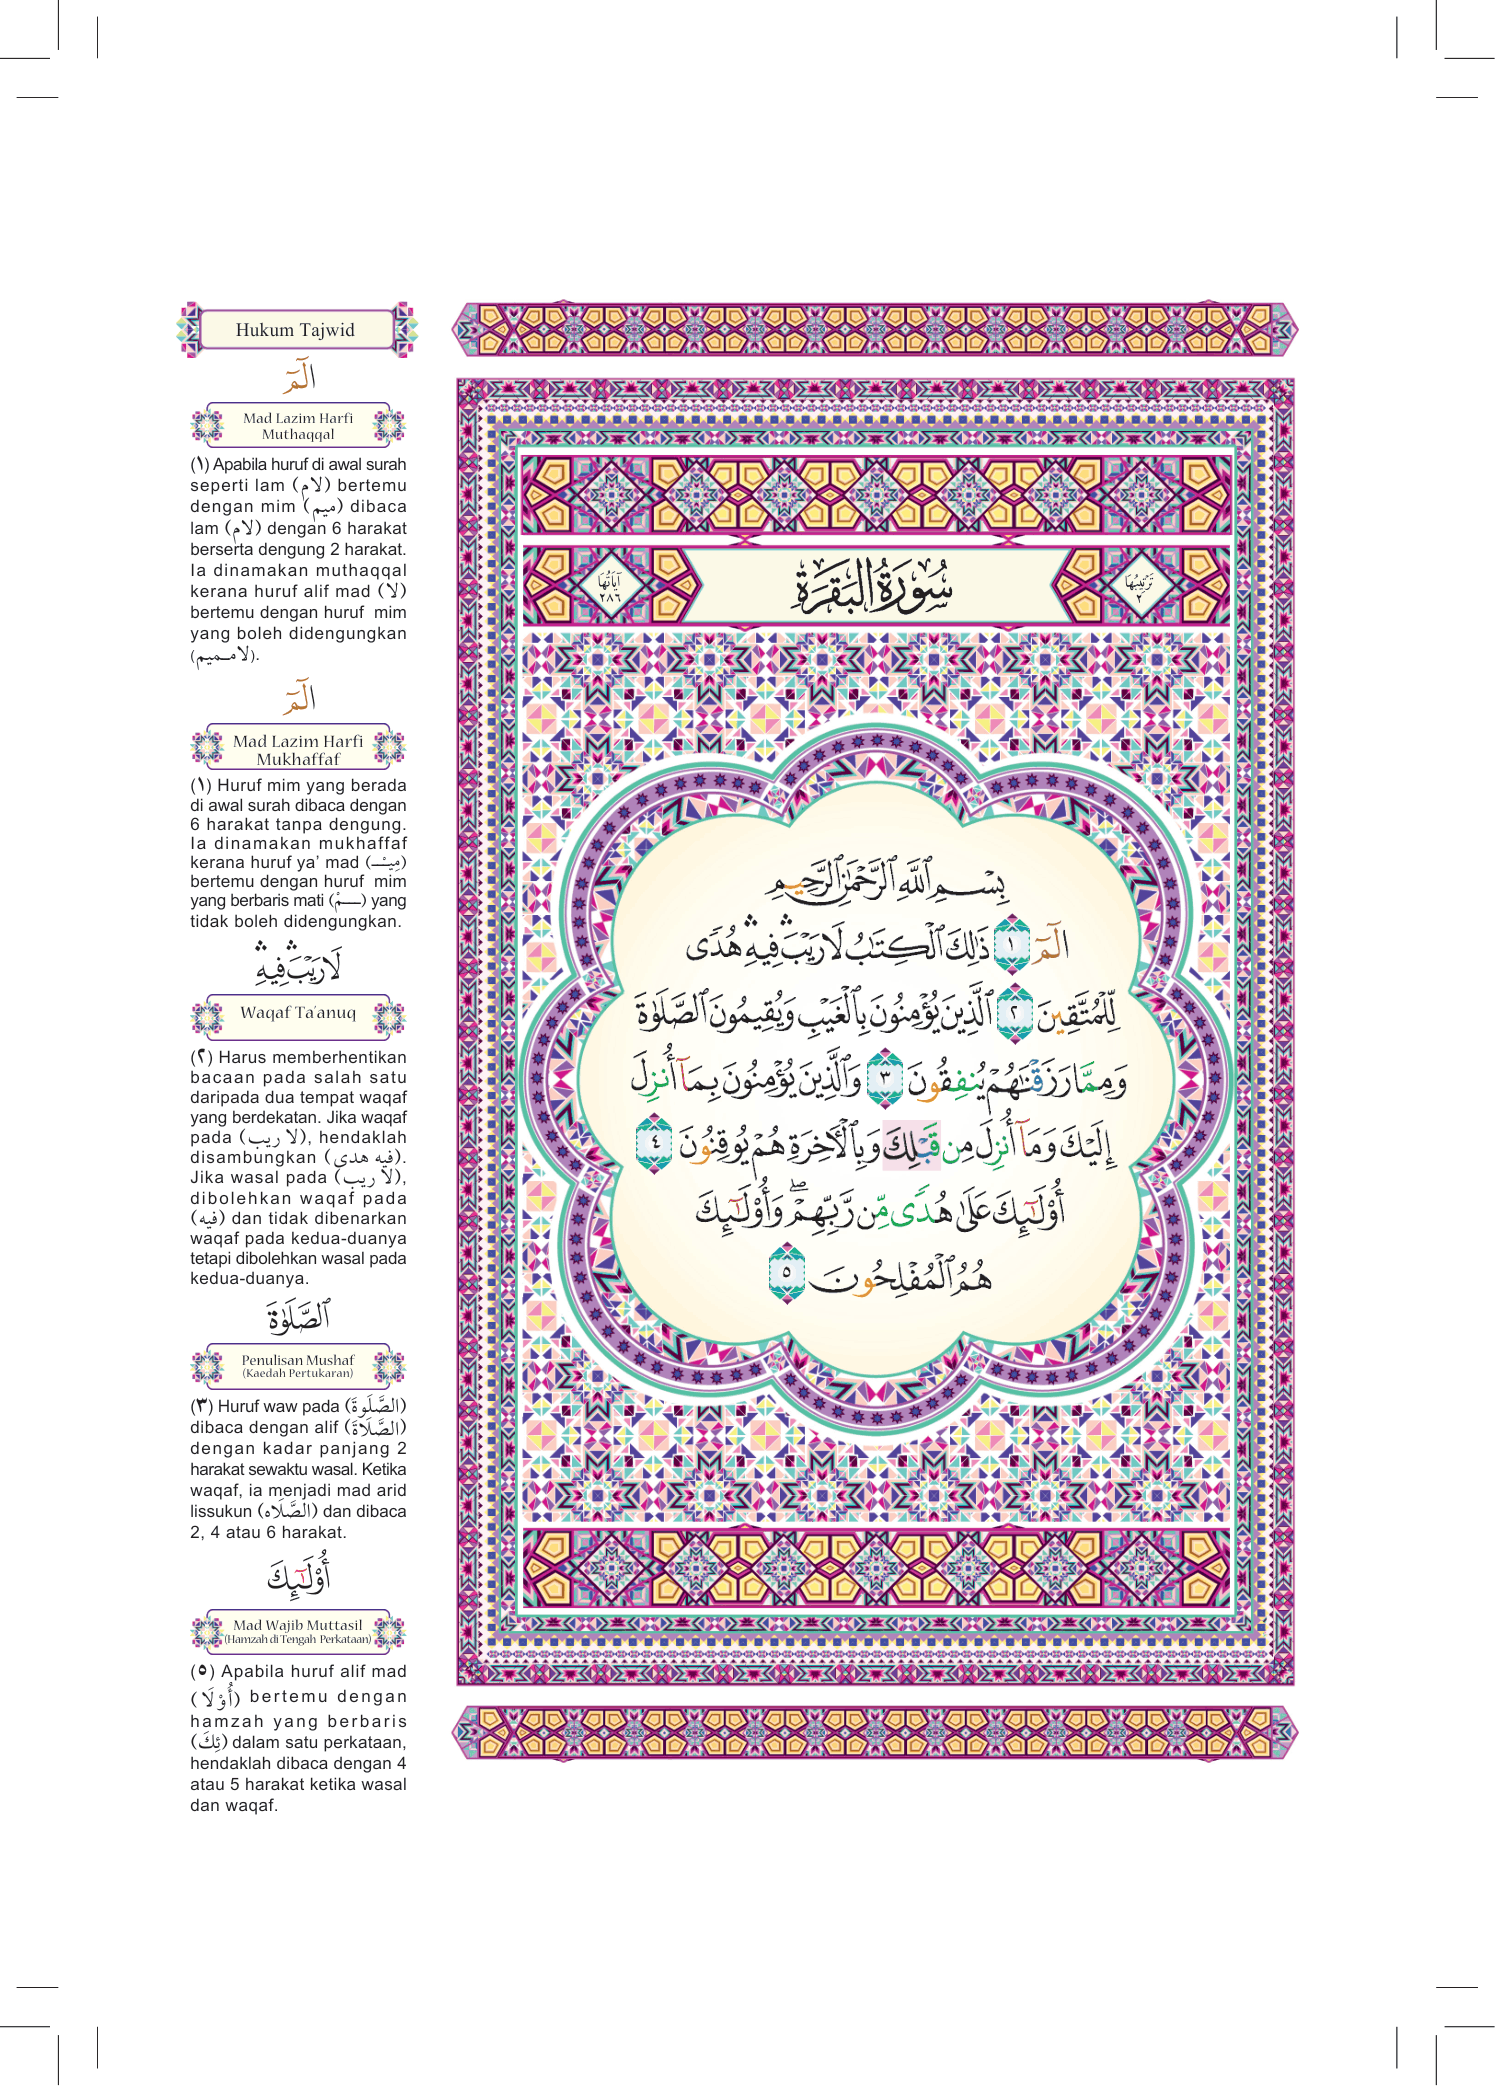 Hukum Tajwid
الٓمٓ
Mad Lazim Harfi
Muthaqqal
(١) Apabila huruf di awal surah
seperti lam (لام) bertemu
dengan mim (ميم) dibaca
lam (لام) dengan 6 harakat
berserta dengung 2 harakat.
Ia dinamakan muthaqqal
kerana huruf alif mad (لا)
bertemu dengan huruf mim
yang boleh didengungkan
(لامـميم).
الٓمٓ
Mad Lazim Harfi
Mukhaffaf
(١) Huruf mim yang berada
di awal surah dibaca dengan
6 harakat tanpa dengung.
Ia dinamakan mukhaffaf
kerana huruf ya’ mad (مِيْـــ)
bertemu dengan huruf mim
yang berbaris mati (ـــمْ) yang
tidak boleh didengungkan.
لَا رَيْبَ ۛ فِيهِ ۛ
Waqaf Ta'anuq
(٢) Harus memberhentikan
bacaan pada salah satu
daripada dua tempat waqaf
yang berdekatan. Jika waqaf
pada (لا ريب), hendaklah
disambungkan (فيه هدى).
Jika wasal pada (لا ريب),
dibolehkan waqaf pada
(فيه) dan tidak dibenarkan
waqaf pada kedua-duanya
tetapi dibolehkan wasal pada
kedua-duanya.
ٱلصَّلَوٰةَ
Penulisan Mushaf
(Kaedah Pertukaran)
(٣) Huruf waw pada (الصَّلَوةَ)
dibaca dengan alif (الصَّلَاةَ)
dengan kadar panjang 2
harakat sewaktu wasal. Ketika
waqaf, ia menjadi mad arid
lissukun (الصَّلَاه) dan dibaca
2, 4 atau 6 harakat.
أُوْلَٰٓئِكَ
Mad Wajib Muttasil
(Hamzah di Tengah Perkataan)
(٥) Apabila huruf alif mad
(أُوْلَا) bertemu dengan
hamzah yang berbaris
(ئِكَ) dalam satu perkataan,
hendaklah dibaca dengan 4
atau 5 harakat ketika wasal
dan waqaf.
تَرْتِيبُهَا
٢
سُورَةُ البَقَرَةِ
آيَاتُهَا
٢٨٦
بِسْمِ ٱللَّهِ ٱلرَّحْمَٰنِ ٱلرَّحِيمِ
الٓمٓ ١ ذَٰلِكَ ٱلْكِتَٰبُ لَا رَيْبَ ۛ فِيهِ ۛ هُدًى
لِّلْمُتَّقِينَ ٢ ٱلَّذِينَ يُؤْمِنُونَ بِٱلْغَيْبِ وَيُقِيمُونَ ٱلصَّلَوٰةَ
وَمِمَّا رَزَقْنَٰهُمْ يُنفِقُونَ ٣ وَٱلَّذِينَ يُؤْمِنُونَ بِمَآ أُنزِلَ
إِلَيْكَ وَمَآ أُنزِلَ مِن قَبْلِكَ وَبِٱلْأَخِرَةِ هُمْ يُوقِنُونَ ٤
أُوْلَٰٓئِكَ عَلَىٰ هُدًى مِّن رَّبِّهِمْ ۖ وَأُوْلَٰٓئِكَ
هُمُ ٱلْمُفْلِحُونَ ٥